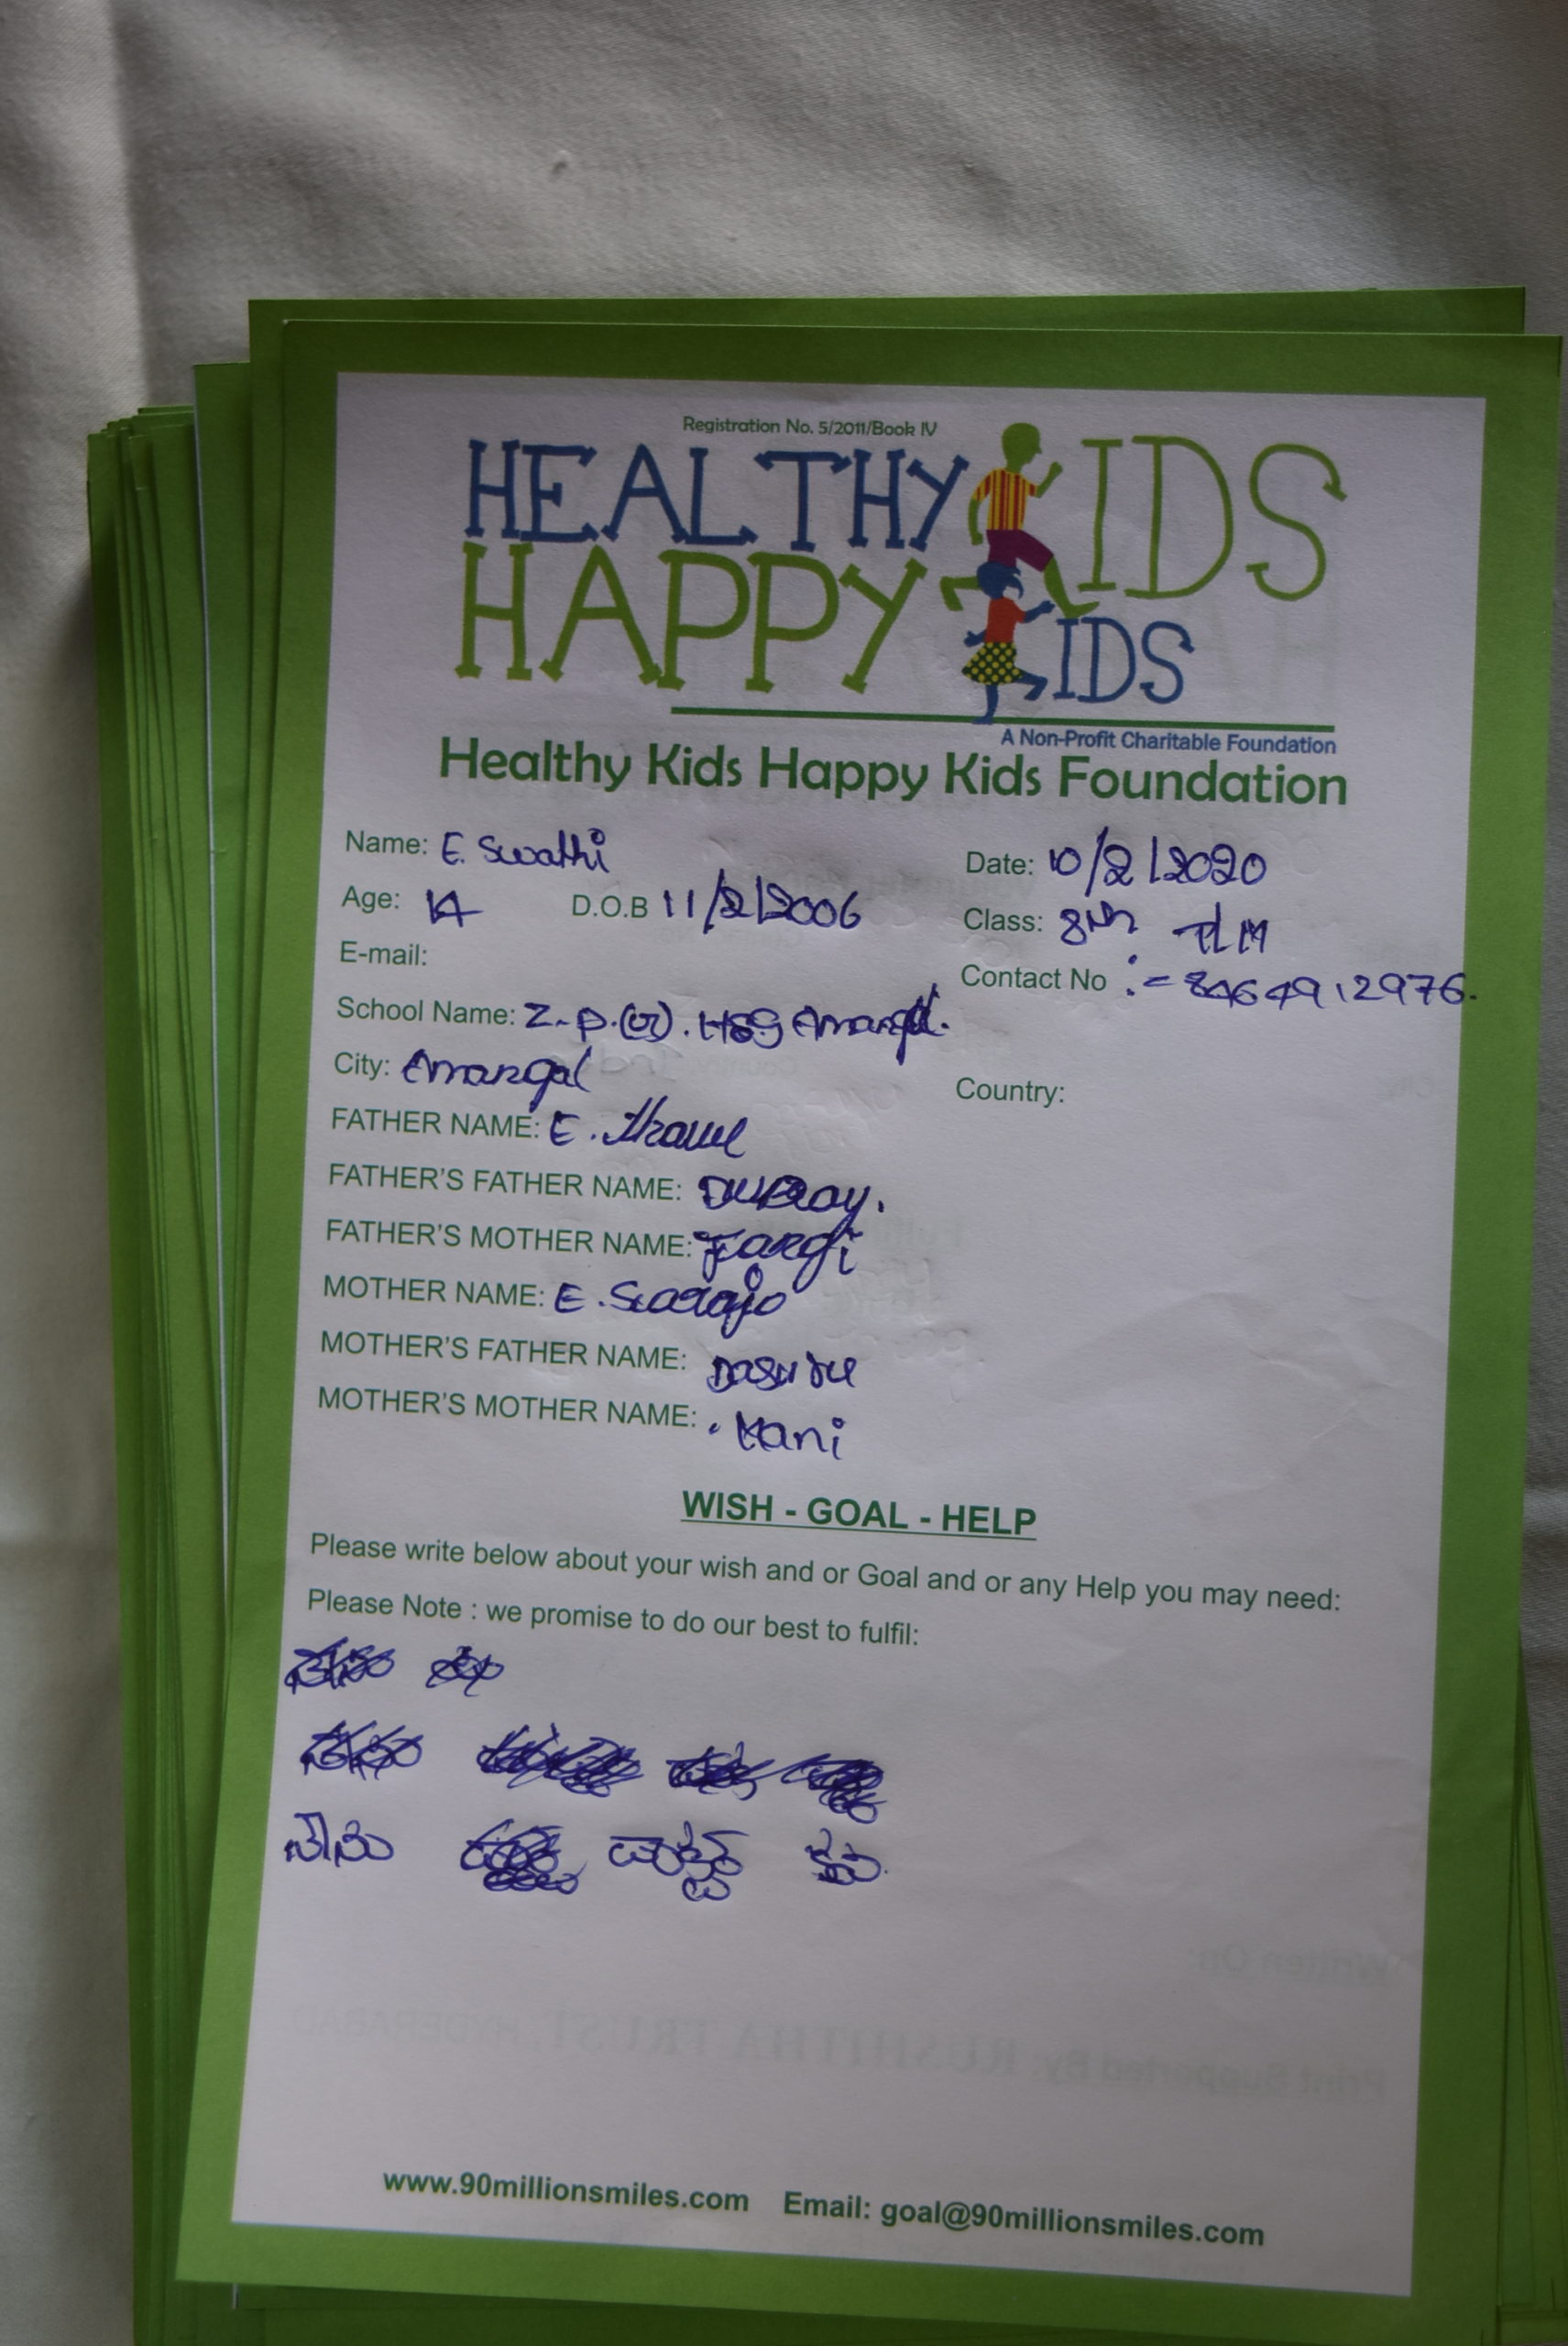 Registration No. 5/2011/Book IV
HEALTHY KIDS
HAPPY KIDS
A Non-Profit Charitable Foundation
Healthy Kids Happy Kids Foundation
Name: E. Swathi Date: 10/2/2020
Age: 14 D.O.B 11/2/2006 Class: 8th
E-mail: Contact No :- 8464912976.
School Name: Z.P.(G).HSG Amangal.
City: Amangal Country:
FATHER NAME: E.
FATHER'S FATHER NAME:
FATHER'S MOTHER NAME:
MOTHER NAME: E.
MOTHER'S FATHER NAME:
MOTHER'S MOTHER NAME: . Mani
WISH - GOAL - HELP
Please write below about your wish and or Goal and or any Help you may need:
Please Note : we promise to do our best to fulfil:
నేను డాక్టర్
Written On:
Print Supported By: RUSHITHA TRUST, HYDERABAD.
www.90millionsmiles.com Email: goal@90millionsmiles.com